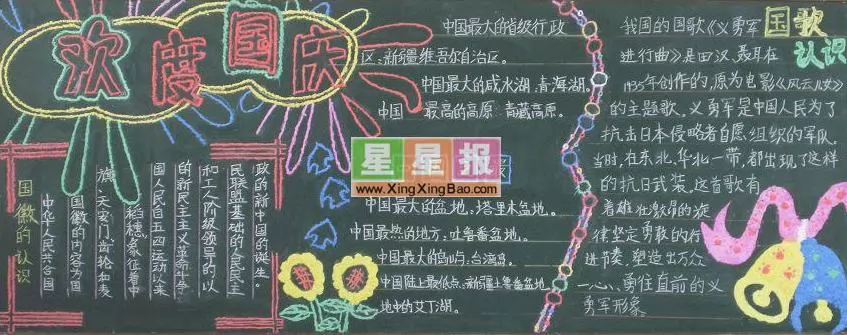 欢度国庆
中国最大的省级行政
区:新疆维吾尔自治区。
中国最大的咸水湖:青海湖。
中国 最高的高原:青藏高原。
星星报
www.XingXingBao.com
中国最大的盆地:塔里木盆地。
中国最热的地方:吐鲁番盆地。
中国最大的岛屿:台湾岛。
中国陆上最低点:新疆吐鲁番盆地
地中的艾丁湖。
国徽的认识
中华人民共和国
国徽的内容为国
旗、天安门、齿轮和麦
稻穗,象征着中
国人民自五四运动以来
的新民主主义革命斗争
和工人阶级领导的以
工农联盟为基础的人民民主
政的新中国的诞生。
国歌
认识
我国的国歌《义勇军
进行曲》是田汉、聂耳在
1935年创作的,原为电影《风云儿女》
的主题歌。义勇军是中国人民为了
抗击日本侵略者自愿组织的军队。
当时,在东北、华北一带,都出现了这样
的抗日武装。这首歌有
着雄壮激昂的旋
律坚定勇敢的行
进节奏,塑造出万众
一心、勇往直前的义
勇军形象